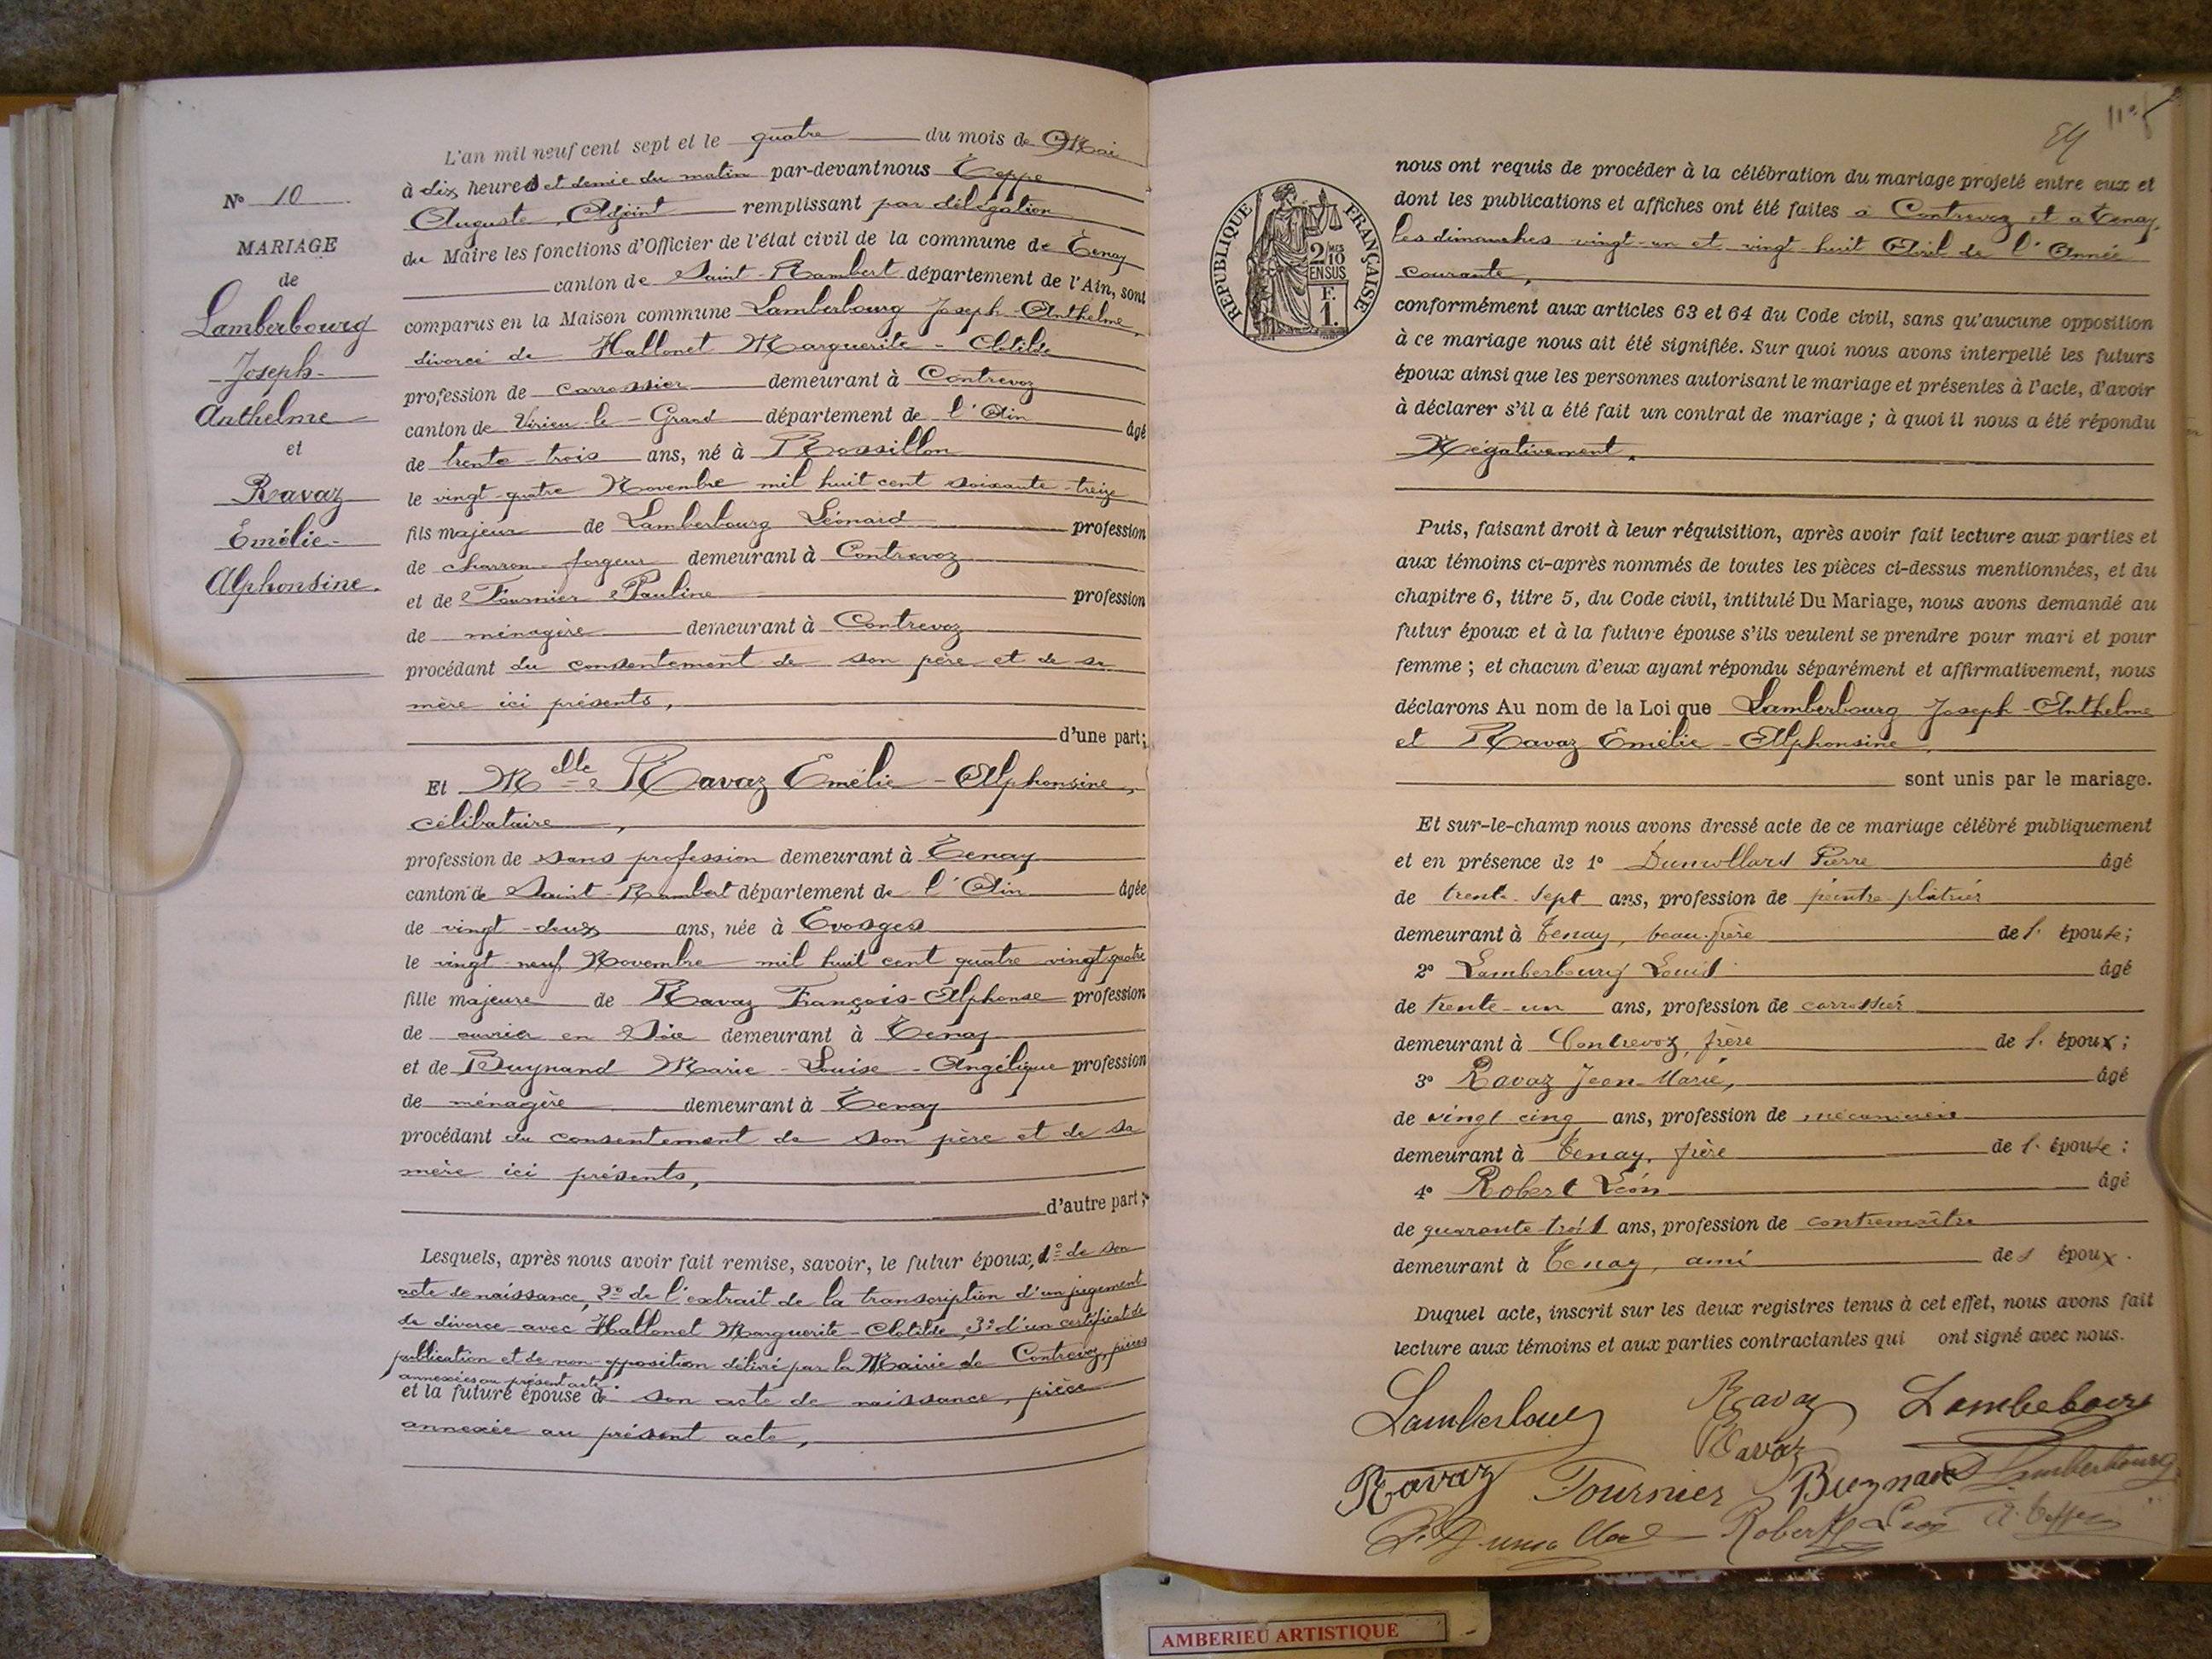 N° 10
MARIAGE
de
Lamberbourg
Joseph-
Anthelme
et
Ravaz
Emélie-
Alphonsine.
L'an mil neuf cent sept et le quatre du mois de Mai
à dix heures et demie du matin par-devant nous Teppe
Auguste, Adjoint remplissant par délégation
du Maire les fonctions d'Officier de l'état civil de la commune de Tenay
canton de Saint-Rambert département de l'Ain, sont
comparus en la Maison commune Lamberbourg Joseph-Anthelme,
divorcé de Hallonet Marguerite-Clotilde
profession de carrossier demeurant à Contrevoz
canton de Virieu-le-Grand département de l'Ain âgé
de trente-trois ans, né à Rossillon
le vingt-quatre Novembre mil huit cent soixante-treize
fils majeur de Lamberbourg Léonard profession
de charron-forgeur demeurant à Contrevoz
et de Fournier Pauline profession
de ménagère demeurant à Contrevoz
procédant du consentement de son père et de sa
mère ici présents,
d'une part;
Et Melle Ravaz Emélie-Alphonsine,
célibataire,
profession de sans profession demeurant à Tenay
canton de Saint-Rambert département de l'Ain âgée
de vingt-deux ans, née à Evosges
le vingt-neuf Novembre mil huit cent quatre vingt quatre
fille majeure de Ravaz François-Alphonse profession
de ouvrier en Soie demeurant à Tenay
et de Buynand Marie-Louise-Angélique profession
de ménagère demeurant à Tenay
procédant du consentement de son père et de sa
mère ici présents,
d'autre part;
Lesquels, après nous avoir fait remise, savoir, le futur époux, 1° de son
acte de naissance, 2° de l'extrait de la transcription d'un jugement
de divorce avec Hallonet Marguerite-Clotilde, 3° d'un certificat de
publication et de non-opposition délivré par la Mairie de Contrevoz, pièces
annexées au présent acte
et la future épouse de son acte de naissance, pièce
annexée au présent acte,
REPUBLIQUE FRANÇAISE
2 MES
10
EN SUS
F.
1.
nous ont requis de procéder à la célébration du mariage projeté entre eux et
dont les publications et affiches ont été faites à Contrevoz et a Tenay,
les dimanches vingt-un et vingt-huit Avril de l'Année
courante,
conformément aux articles 63 et 64 du Code civil, sans qu'aucune opposition
à ce mariage nous ait été signifiée. Sur quoi nous avons interpellé les futurs
époux ainsi que les personnes autorisant le mariage et présentes à l'acte, d'avoir
à déclarer s'il a été fait un contrat de mariage ; à quoi il nous a été répondu
Négativement.
Puis, faisant droit à leur réquisition, après avoir fait lecture aux parties et
aux témoins ci-après nommés de toutes les pièces ci-dessus mentionnées, et du
chapitre 6, titre 5, du Code civil, intitulé Du Mariage, nous avons demandé au
futur époux et à la future épouse s'ils veulent se prendre pour mari et pour
femme ; et chacun d'eux ayant répondu séparément et affirmativement, nous
déclarons Au nom de la Loi que Lamberbourg Joseph-Anthelme
et Ravaz Emélie-Alphonsine,
sont unis par le mariage.
Et sur-le-champ nous avons dressé acte de ce mariage célébré publiquement
et en présence de 1° Dumollard Pierre âgé
de trente-sept ans, profession de peintre plâtrier
demeurant à Tenay, beau-frère de l' épouse;
2° Lamberbourg Louis âgé
de trente-un ans, profession de carrossier
demeurant à Contrevoz, frère de l' époux;
3° Ravaz Jean-Marie, âgé
de vingt cinq ans, profession de mécanicien
demeurant à Tenay, frère de l' épouse;
4° Robert Léon âgé
de quarante-trois ans, profession de contremaître
demeurant à Tenay, ami des époux.
Duquel acte, inscrit sur les deux registres tenus à cet effet, nous avons fait
lecture aux témoins et aux parties contractantes qui ont signé avec nous.
Lamberbourg Ravaz Lamberbourg
Ravaz
Ravaz Fournier Buynand Lamberbourg
P. Dumollard Robert Léon A. Teppe
AMBERIEU ARTISTIQUE